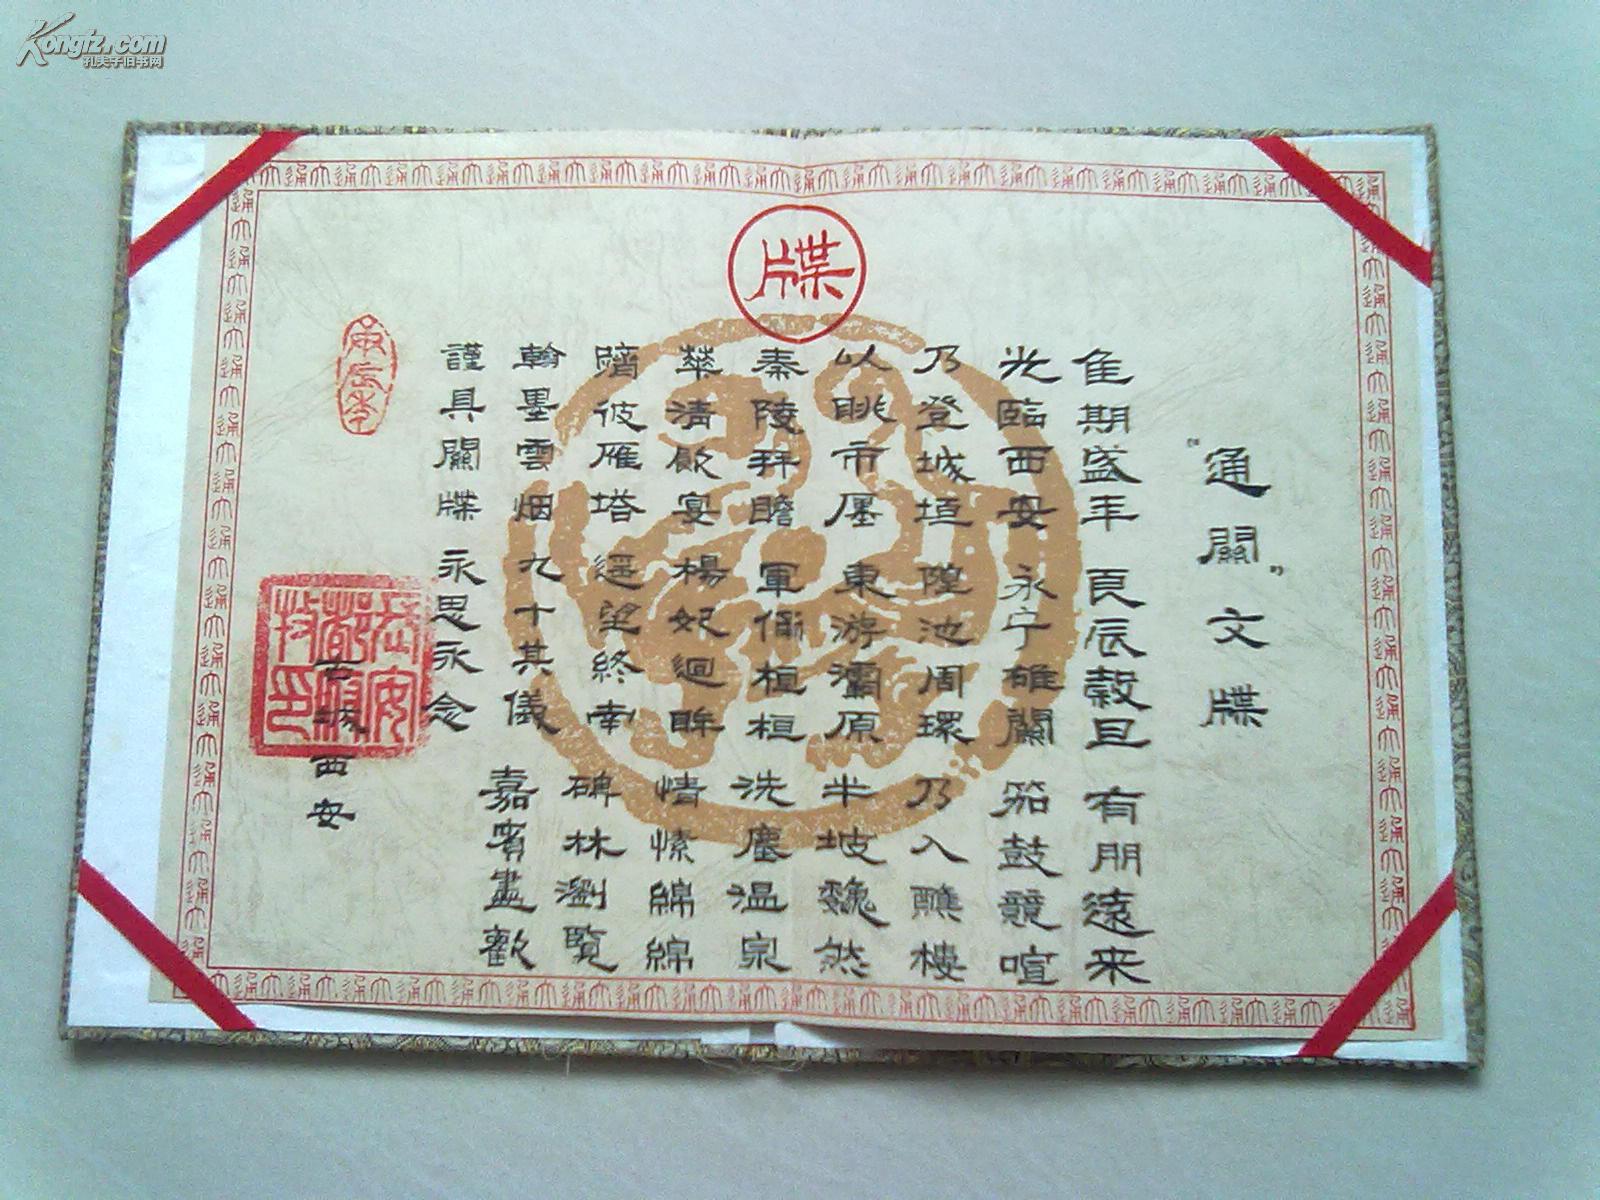 Kongfz.com
孔夫子旧书网
牒
"通關"文牒
隹期盛年 良辰穀旦 有朋遠来
光臨西安 永宁雄關 笳鼓競喧
乃登城垣 隍池周環 乃入醮樓
以眺市厘 東游灞原 半坡巍然
秦陵拜瞻 軍俑桓桓 洗塵温泉
華清飲宴 楊妃迴眸 情愫綿綿
隮彼雁塔 遥望終南 碑林瀏覧
翰墨雲烟 九十其儀 嘉賓盡歡
謹具關牒 永思永念
古城西安